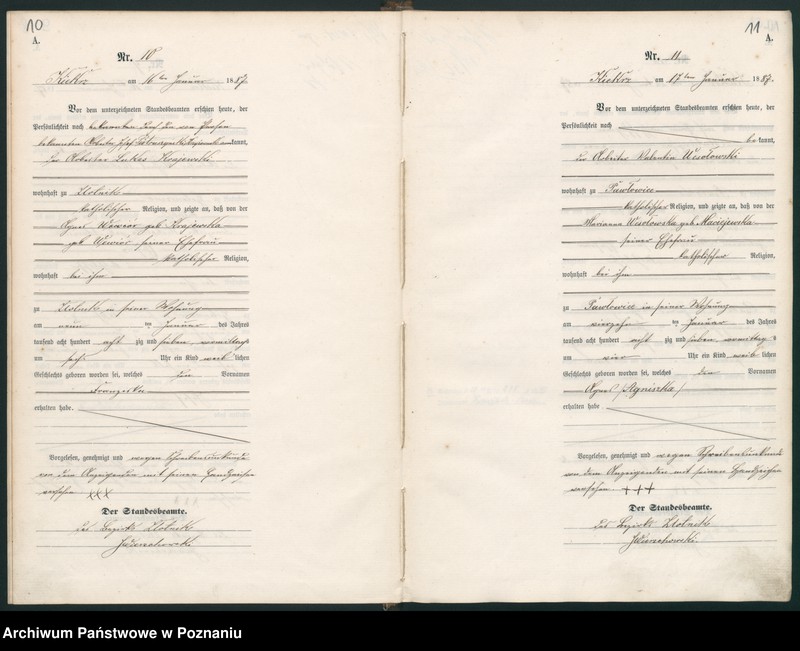 10
A.
Nr. 10
Kiekrz am 10ten Januar 1887.
Vor dem unterzeichneten Standesbeamten erschien heute, der
Persönlichkeit nach
bekannten kannt,
der Arbeiter Lukas Krajewski
wohnhaft zu Zlotnik
katholischer Religion, und zeigte an, daß von der
Agnes geb Krajewska
geb seiner Ehefrau
katholischer Religion,
wohnhaft bei ihm
zu Zlotnik in seiner Wohnung
am neun ten Januar des Jahres
tausend acht hundert acht zig und sieben, vormittags
um sechs Uhr ein Kind weib lichen
Geschlechts geboren worden sei, welches den Vornamen
Franziska
erhalten habe.
Vorgelesen, genehmigt und wegen Schreibensunkunde
von dem Anzeigenden mit seinen Handzeichen
versehen XXX
Der Standesbeamte.
des Bezirks Zlotnik
11
A.
Nr. 11
Kiekrz am 17ten Januar 1887.
Vor dem unterzeichneten Standesbeamten erschien heute, der
Persönlichkeit nach
be kannt,
der Arbeiter Valentin Wesołowski
wohnhaft zu Pawłowice
katholischer Religion, und zeigte an, daß von der
Marianna Wesołowska geb. Maciejewska
seiner Ehefrau
katholischer Religion,
wohnhaft bei ihm
zu Pawłowice in seiner Wohnung
am vierzehn ten Januar des Jahres
tausend acht hundert acht zig und sieben, vormittags
um vier Uhr ein Kind weib lichen
Geschlechts geboren worden sei, welches den Vornamen
Agnes /Agniszka/
erhalten habe
Vorgelesen, genehmigt und wegen Schreibensunkunde
von dem Anzeigenden mit seinen Handzeichen
versehen +++
Der Standesbeamte.
des Bezirks Zlotnik
Archiwum Państwowe w Poznaniu